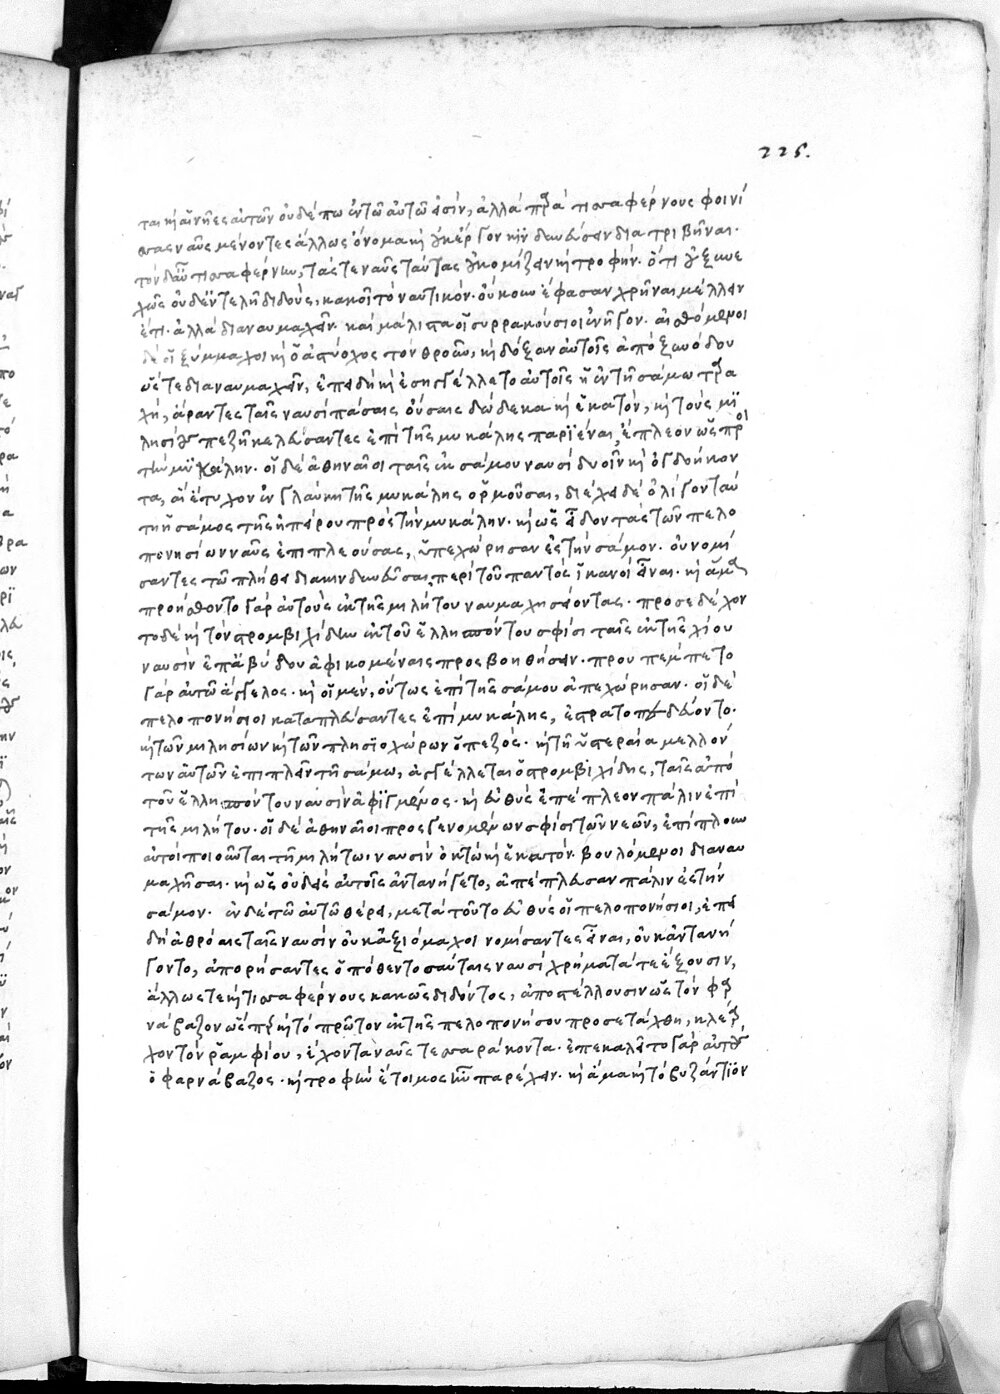 ται κ αἱ νῆες αὐτῶν οὐδέπω ἐν τῶ αὐτῶ εἰσίν, ἀλλὰ παρὰ τισσαφέρνους φοινί
σσας ναῦς μένοντες ἄλλως ὄνομα κ οὐκ ἔργον κινδυνεύσειν διατριβῆναι·
τὸν δ' αὖ τισσαφέρνην, τάς τε ναῦς ταύτας οὐ κομίζειν κ τροφήν· ὅτι οὐ ξυνε
χῶς οὐδ' ἐντελῆ διδοὺς, κακοῖ τὸ ναυτικόν. οὔκουν ἔφασαν χρῆναι μέλλειν
ἔτι· ἀλλὰ διαναυμαχεῖν· καὶ μάλιστα οἱ συρρακούσιοι ἐνῆγον. αἰσθόμενοι
δὲ οἱ ξύμμαχοι κ ὁ ἀστύοχος τὸν θροῦν, κ δόξαν αὐτοῖς ἀπὸ ξυνόδου
ὥστε διαναυμαχεῖν, ἐπειδὴ κ ἐσηγγέλλετο αὐτοῖς ἡ ἐν τῆ σάμω ταρα
χή, ἄραντες ταῖς ναυσὶ πάσαις οὔσαις δώδεκα κ ἑκατόν, κ τοὺς μι
λησίους πεζῆ κελεύσαντες ἐπὶ τῆς μυκάλης παρϊέναι, ἔπλεον ὡς πρὸς
τὴν μϋκάλην. οἱ δὲ ἀθηναῖοι ταῖς ἐκ σάμου ναυσὶ δυοῖν κ ὀγδοήκον
τα, αἳ ἔτυχον ἐν γλαύκη τῆς μυκάλης ὁρμοῦσαι, διέχει δὲ ὀλίγον ταύ
τη ἡ σάμος τῆς ἠπείρου πρὸς τὴν μυκάλην. κ ὡς εἶδον τὰς τῶν πελο
πονησίων ναῦς ἐπιπλεούσας, ὑπεχώρησαν ἐς τὴν σάμον. οὐ νομί
σαντες τῶ πλήθει διακινδυνεῦσαι περὶ τοῦ παντὸς ἱκανοὶ εἶναι. κ ἅμα
προήσθοντο γὰρ αὐτοὺς ἐκ τῆς μιλήτου ναυμαχησείοντας. προσεδέχον
το δὲ κ τὸν στρομβιχίδην ἐκ τοῦ ἑλλησπόντου σφίσι ταῖς ἐκ τῆς χίου
ναυσὶν ἐπ' ἀβύδου ἀφικομέναις προσβοηθήσειν. προυπέμπετο
γὰρ αὐτῶ ἄγγελος. κ οἱ μὲν, οὕτως ἐπὶ τῆς σάμου ἀπεχώρησαν. οἱ δὲ
πελοπονήσιοι καταπλεύσαντες ἐπὶ μυκάλης, ἐστρατοπεδεύοντο·
κ τῶν μιλησίων κ τῶν πλησϊοχώρων ὁ πεζός. κ τῆ ὑστεραία μελλόν
των αὐτῶν ἐπιπλεῖν τῆ σάμω, ἀγγέλλεται ὁ στρομβιχίδης, ταῖς ἀπὸ
τοῦ ἑλλησπόντου ναυσὶν ἀφϊγμένος. κ εὐθὺς ἐπέπλεον πάλιν ἐπὶ
τῆς μιλήτου. οἱ δὲ ἀθηναῖοι προσγενομένων σφίσι τῶν νεῶν, ἐπίπλουν
αὐτοὶ ποιοῦνται τῆ μιλήτω, ναυσὶν ὀκτὼ κ ἑκατόν. βουλόμενοι διαναυ
μαχῆσαι. κ ὡς οὐδεὶς αὐτοῖς ἀντανήγετο, ἀπέπλευσαν πάλιν ἐς τὴν
σάμον. ἐν δὲ τῶ αὐτῶ θέρει, μετὰ τοῦτο εὐθὺς οἱ πελοπονήσιοι, ἐπει
δὴ ἀθρόαις ταῖς ναυσὶν οὐκ ἀξιόμαχοι νομίσαντες εἶναι, οὐκ ἀντανή
γοντο, ἀπορήσαντες ὁπόθεν τοσαύταις ναυσὶ χρήματα ἕξουσιν,
ἄλλως τε κ τισσαφέρνους κακῶς διδόντος, ἀποστέλλουσιν ὡς τὸν φαρ
νάβαζον ὥσπερ κ τὸ πρῶτον ἐκ τῆς πελοπονήσου προσετάχθη, κλέαρ
χον τὸν ῥαμφίου, ἔχοντα ναῦς τεσσαράκοντα. ἐπεκαλεῖτο γὰρ αὐτοὺς
ὁ φαρνάβαζος. κ τροφὴν ἑτοῖμος ἦν παρέχειν. κ ἅμα κ τὸ βυζάντϊον